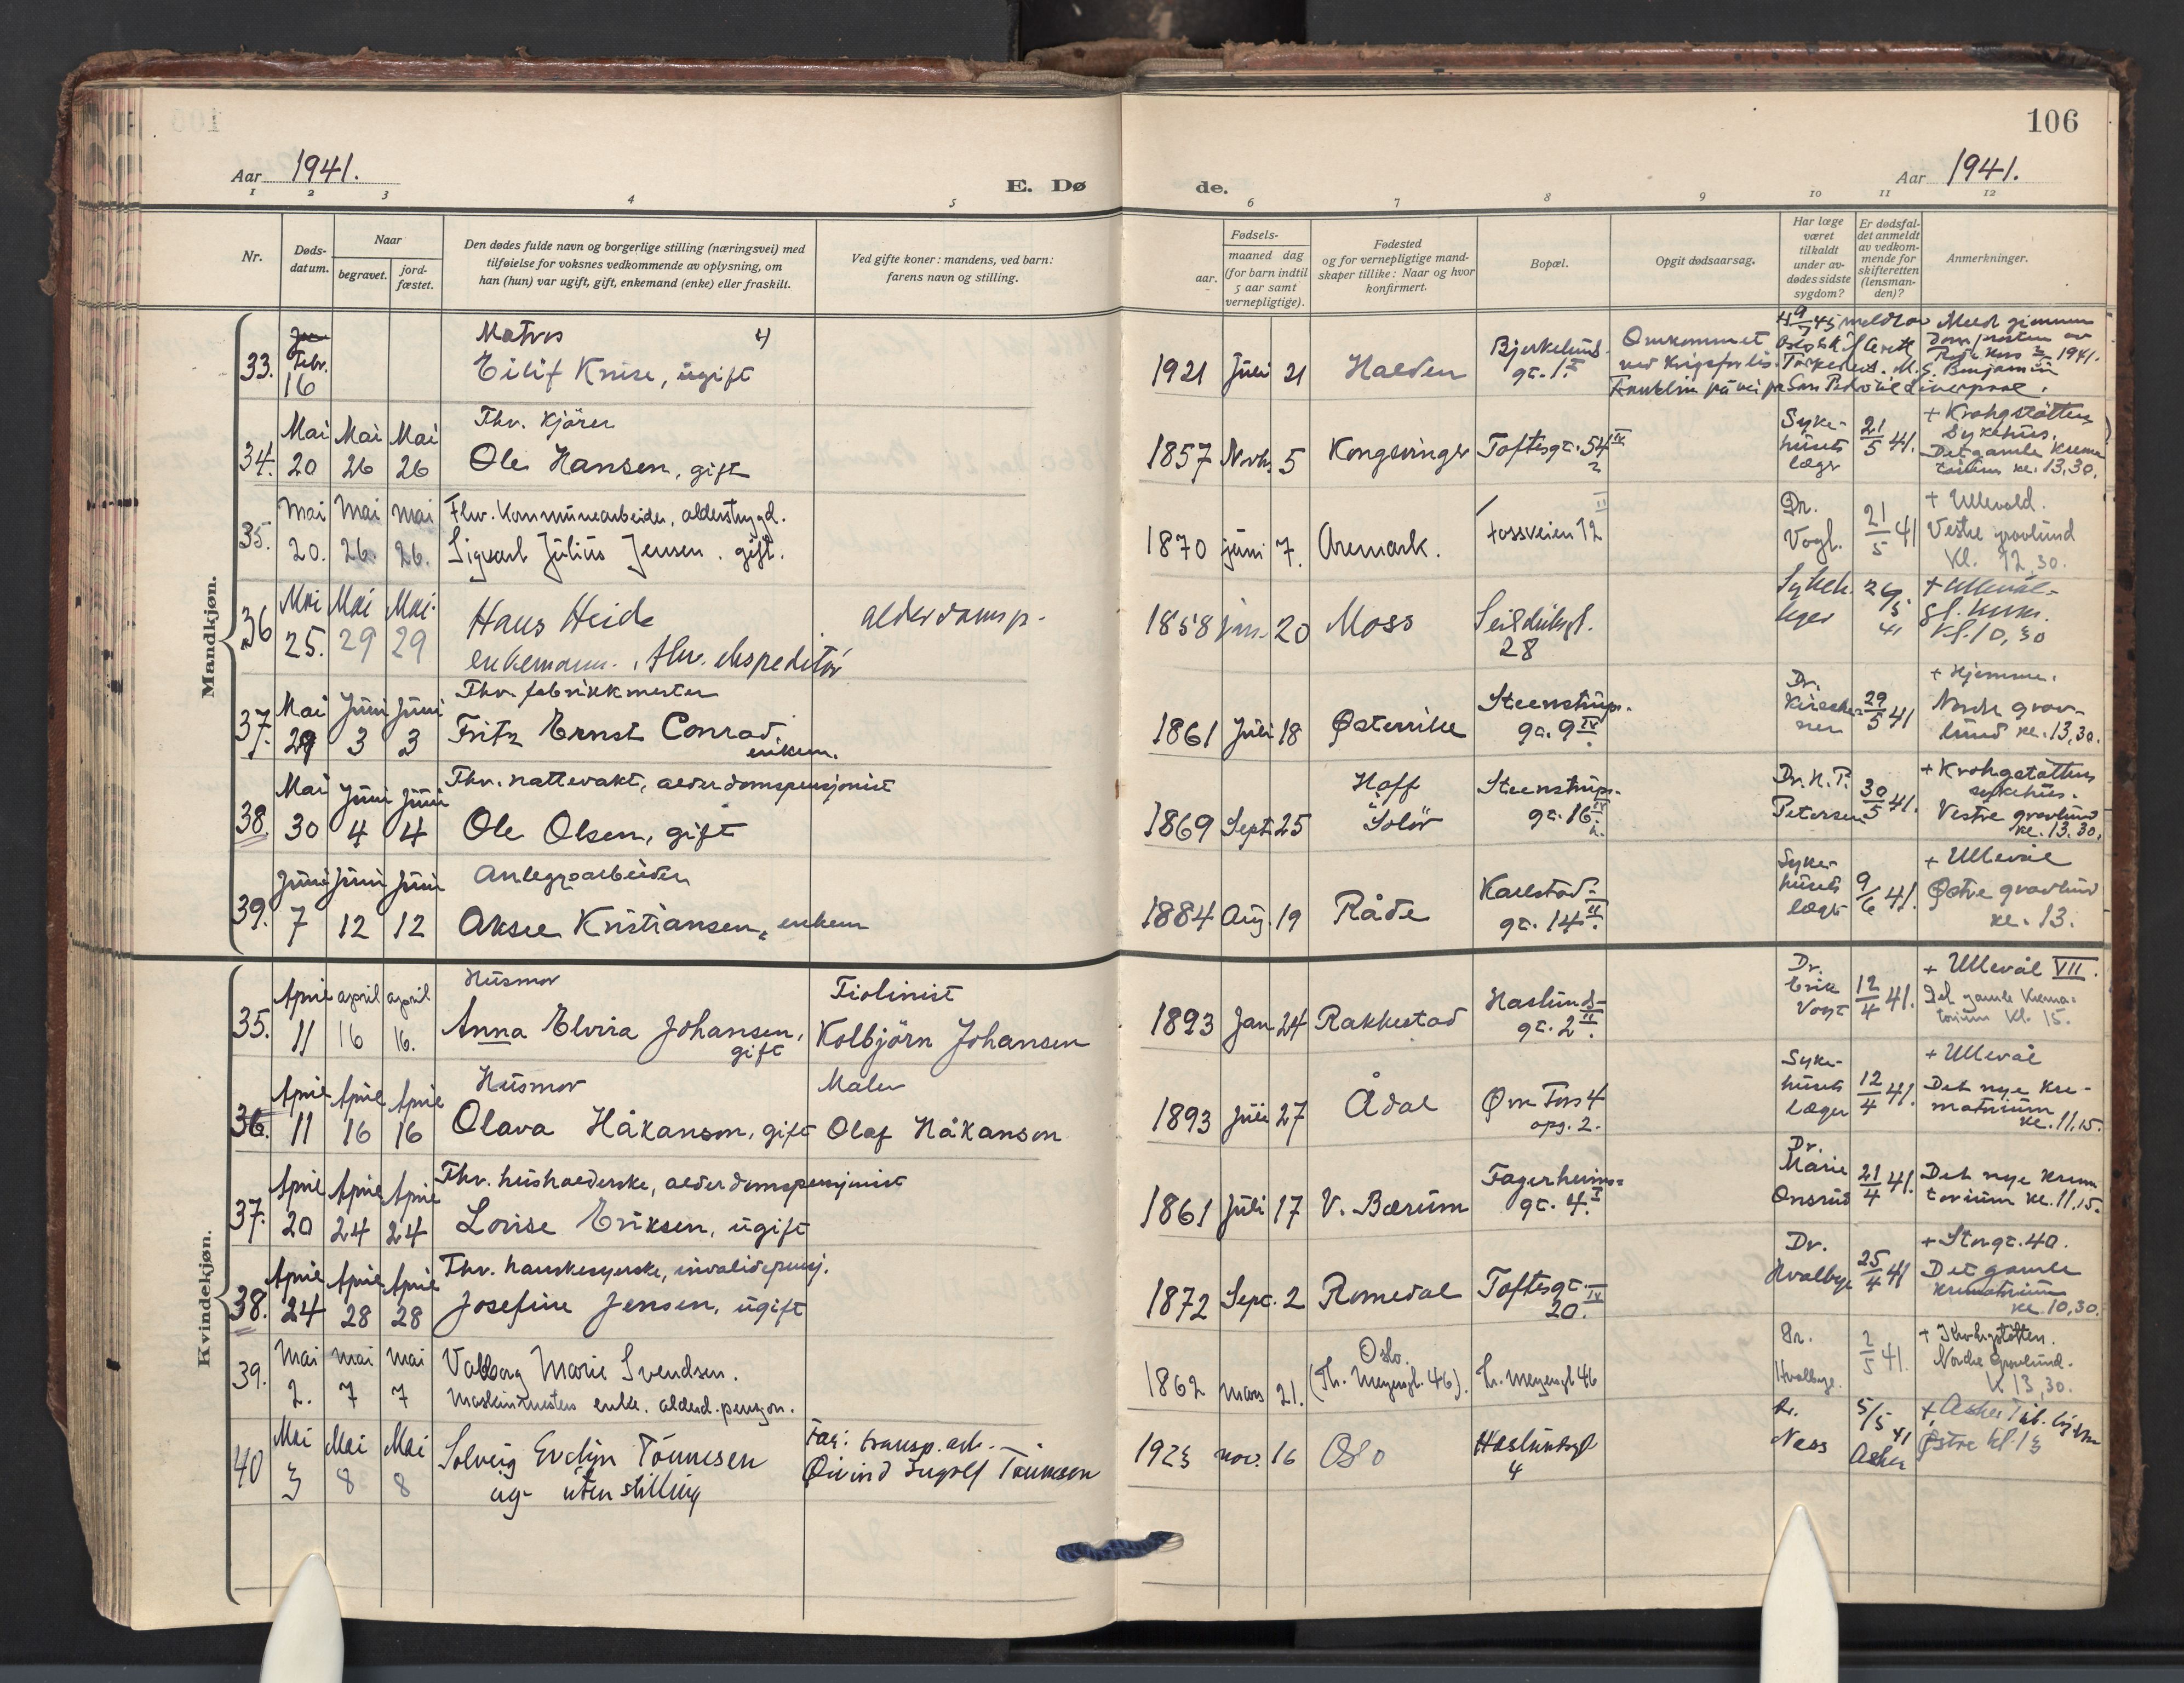 106
Aar 1941.
E. Døde.
Aar 1941.
1 2 3 4 5 6 7 8 9 10 11 12
Nr.
Døds-datum.
Naar
begravet.
jord-fæstet.
Den dødes fulde navn og borgerlige stilling (næringsvei) med
tilføielse for voksnes vedkommende av oplysning, om
han (hun) var ugift, gift, enkemand (enke) eller fraskilt.
Ved gifte koner: mandens, ved barn:
farens navn og stilling.
Fødsels-
aar.
maaned dag
(for barn indtil
5 aar samt
vernepligtige).
Fødested
og for vernepligtige mand-
skaper tillike: Naar og hvor
konfirmert.
Bopæl.
Opgit dødsaarsag.
Har læge
været
tilkaldt
under av-
dødes sidste
sygdom?
Er dødsfal-
det anmeldt
av vedkom-
mende for
skifteretten
(lensman-
den)?
Anmerkninger.
Mandkjøn.
33. Febr. 16 Matros Eilif Kruse, ugift 1921 Juli 21 Halden Bjerkelunds-gt. 1 Omkommet ved krigsforlis
34. Mai 20 Mai 26 Mai 26 Fhv. kjører Ole Hansen, gift 1857 Novb. 5 Kongsvinger Toftesgt. 54 IV Syke-husets læge 21/5 41. + Krohgstøttens Sykehus. Det gamle krematorium kl. 13,30.
35. Mai 20. Mai 26. Mai 26. Fhv. Kommunearbeider, alderstrygd. Sigvart Julius Jensen. gift. 1870 juni 7. Aremark. Fossveien 12 II Dr. Vogt. 21/5 41 + Ullevål. Vestre gravlund kl. 12,30.
36 Mai 25. Mai 29 Mai 29 Hans Heide enkemann., fhv. ekspeditør alderdomsp. 1858 jan. 20 Moss Seilduksgt. 28 Sykeh. leger 26/5 41 + Ullevål- gl. krem. kl. 10,30
37. Mai 29 Juni 3 Juni 3 Fhv. fabrikkmester Fritz Ernst Conrad, enkem. 1861 Juli 18 Østerrike Steenstrups-gt. 9 IV. Dr. Kirschner 29/5 41 + Hjemme. Nordre grav-lund kl. 13,30.
38. Mai 30 Juni 4 Juni 4 Fhv. nattevakt, alderdomspensjonist Ole Olsen, gift 1869 Sept. 25 Hoff Solør Steenstrups-gt. 16 IV Dr. H. P. Petersen 30/5 41. + Krohgstøttens sykehus. Vestre gravlund kl. 13.30.
39. Juni 7 Juni 12 Juni 12 Anleggsarbeider Aksel Kristiansen, enkem 1884 Aug. 19 Råde Karlstad-gt. 14 II. Syke-husets læge 9/6 41. + Ullevål Østre gravlund kl. 13.
Kvindekjøn.
35. April 11 april 16 april 16. Husmor Anna Elvira Johansen, gift Fiolinist Kolbjørn Johansen 1893 Jan 24 Rakkestad Haslunds-gt. 2 II. Dr. Erik Vogt 12/4 41. + Ullevål VII. Det gamle Krema-torium kl. 15.
36. April 11 April 16 April 16 Husmor Olava Håkanson, gift Maler Olaf Håkanson 1893 Juli 27 Ådal Øvre Foss 4 opg. 2. Syke-husets læger 12/4 41. + Ullevål Det nye kre-matorium kl. 11.15.
37. April 20 April 24 April 24 Fhv. husholderske, alderdomspensjonist Lovise Eriksen, ugift 1861 Juli 17 V. Bærum Fagerheims-gt. 4. I Dr. Marie Onsrud 21/4 41. Det nye krema-torium kl. 11.15.
38. April 24 April 28 April 28 Fhv. hanskesyerske, invalidepensj. Josefine Jensen, ugift 1872 Sept. 2 Romedal Toftesgt. 20. IV Dr. Hvalbye 25/4 41 + Storgt. 40. Det gamle krematorium kl 10,30.
39. Mai 2. Mai 7 Mai 7 Valborg Marie Svendsen. Maskinmesters enke. alderd. pensjon. 1862 mars 21. Oslo. (Th. Meyersgt. 46). Th. Meyersgt 46 Dr. Hvalbye. 2/5 41. + Krohgstøtten. Nordre Gravlund. kl 13,30.
40 Mai 3 Mai 8 Mai 8 Solveig Evelyn Tønnesen ug- uten stilling Far: transp. arb. Øivind Ingolf Tønnesen 1923 nov. 16 Oslo Haslundsgt 4 Dr. Ness 5/5 41 Asker + Asker Østre kl. 13